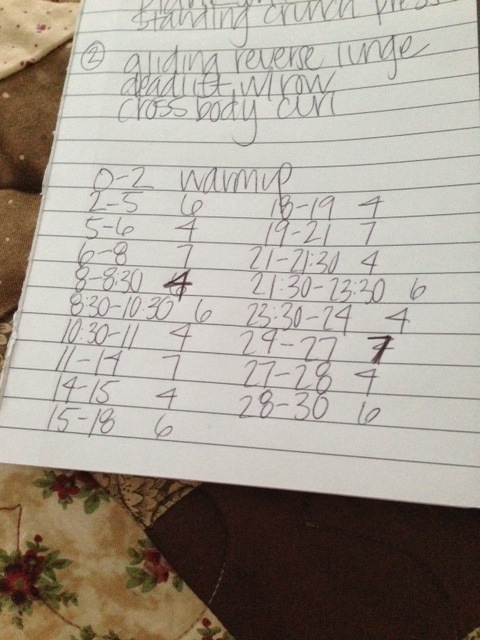 standing crunch press
② gliding reverse lunge
deadlift w/row
cross body curl
0-2 warmup
2-5 6
5-6 4
6-8 7
8-8:30 4
8:30-10:30 6
10:30-11 4
11-14 7
14-15 4
15-18 6
18-19 4
19-21 7
21-21:30 4
21:30-23:30 6
23:30-24 4
24-27 7
27-28 4
28-30 6